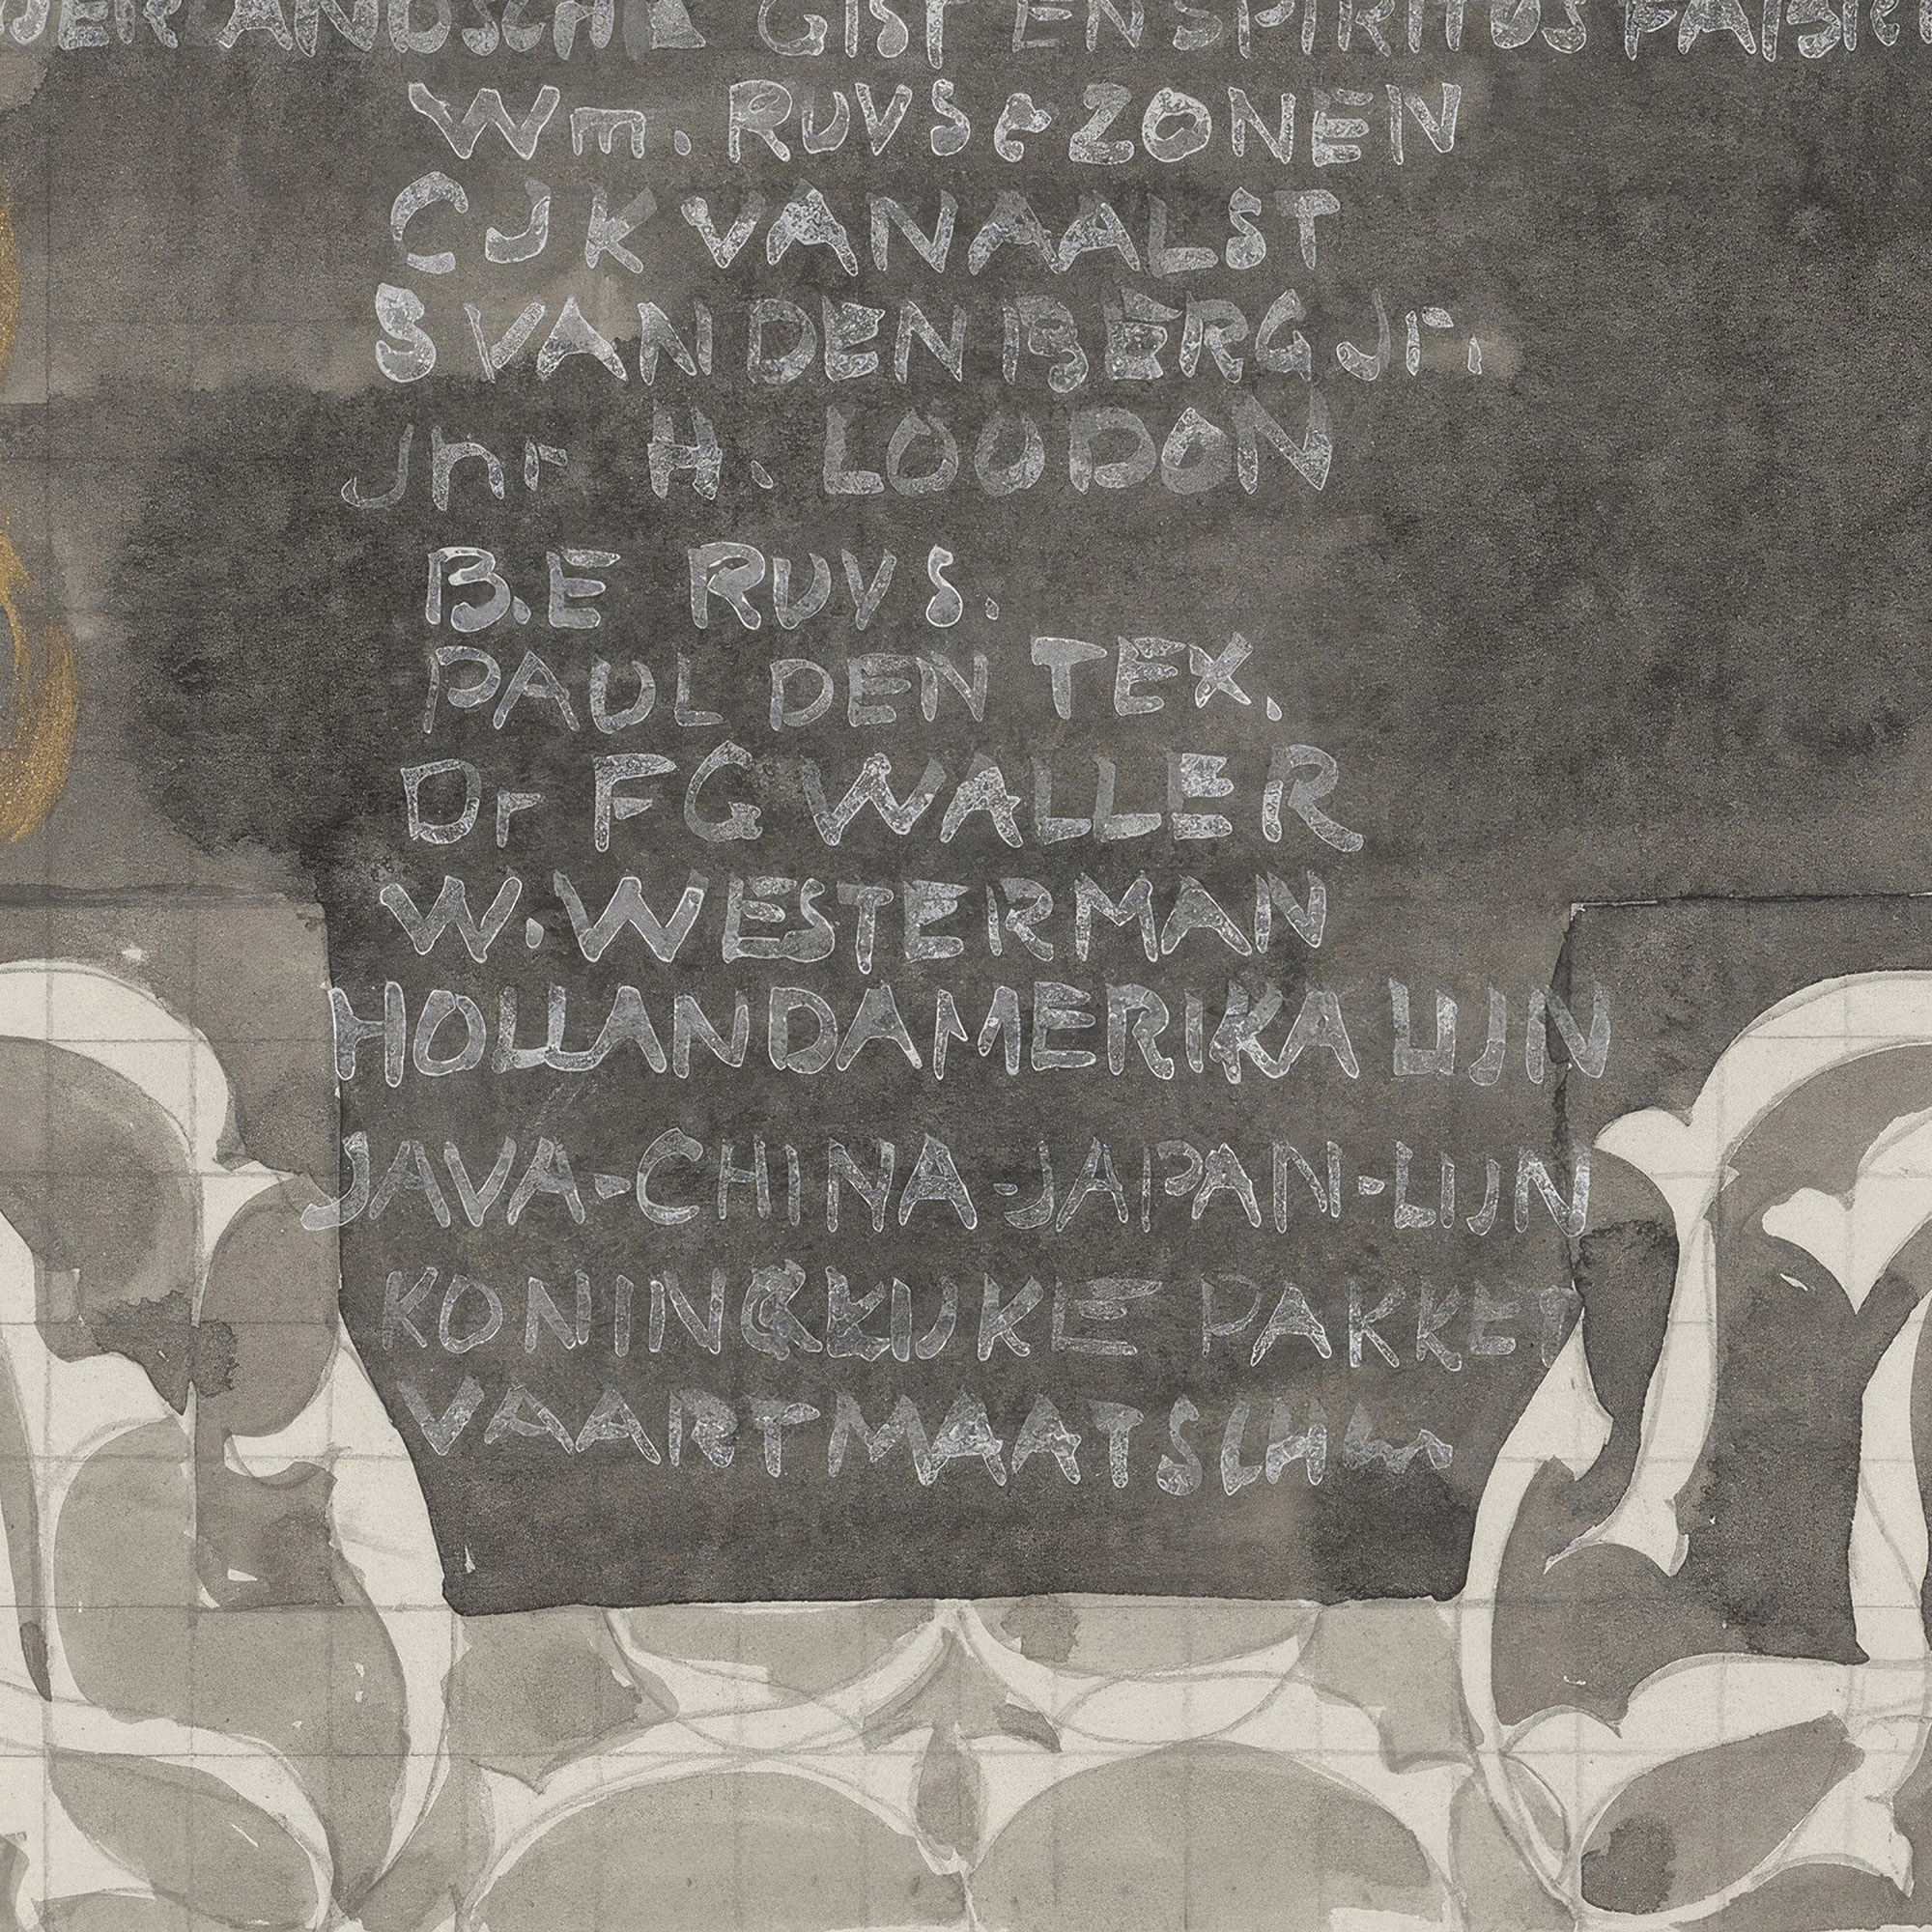 DERLANDSCHE GIST EN SPIRITUS FABRI
Wm. RUYS & ZONEN
C J K VAN AALST
S VAN DEN BERG Jr.
Jhr H. LOUDON
B.E RUYS.
PAUL DEN TEX.
Dr F G WALLER
W. WESTERMAN
HOLLAND AMERIKA LIJN
JAVA-CHINA-JAPAN-LIJN
KONINKLIJKE PAKKET
VAART MAATSCH